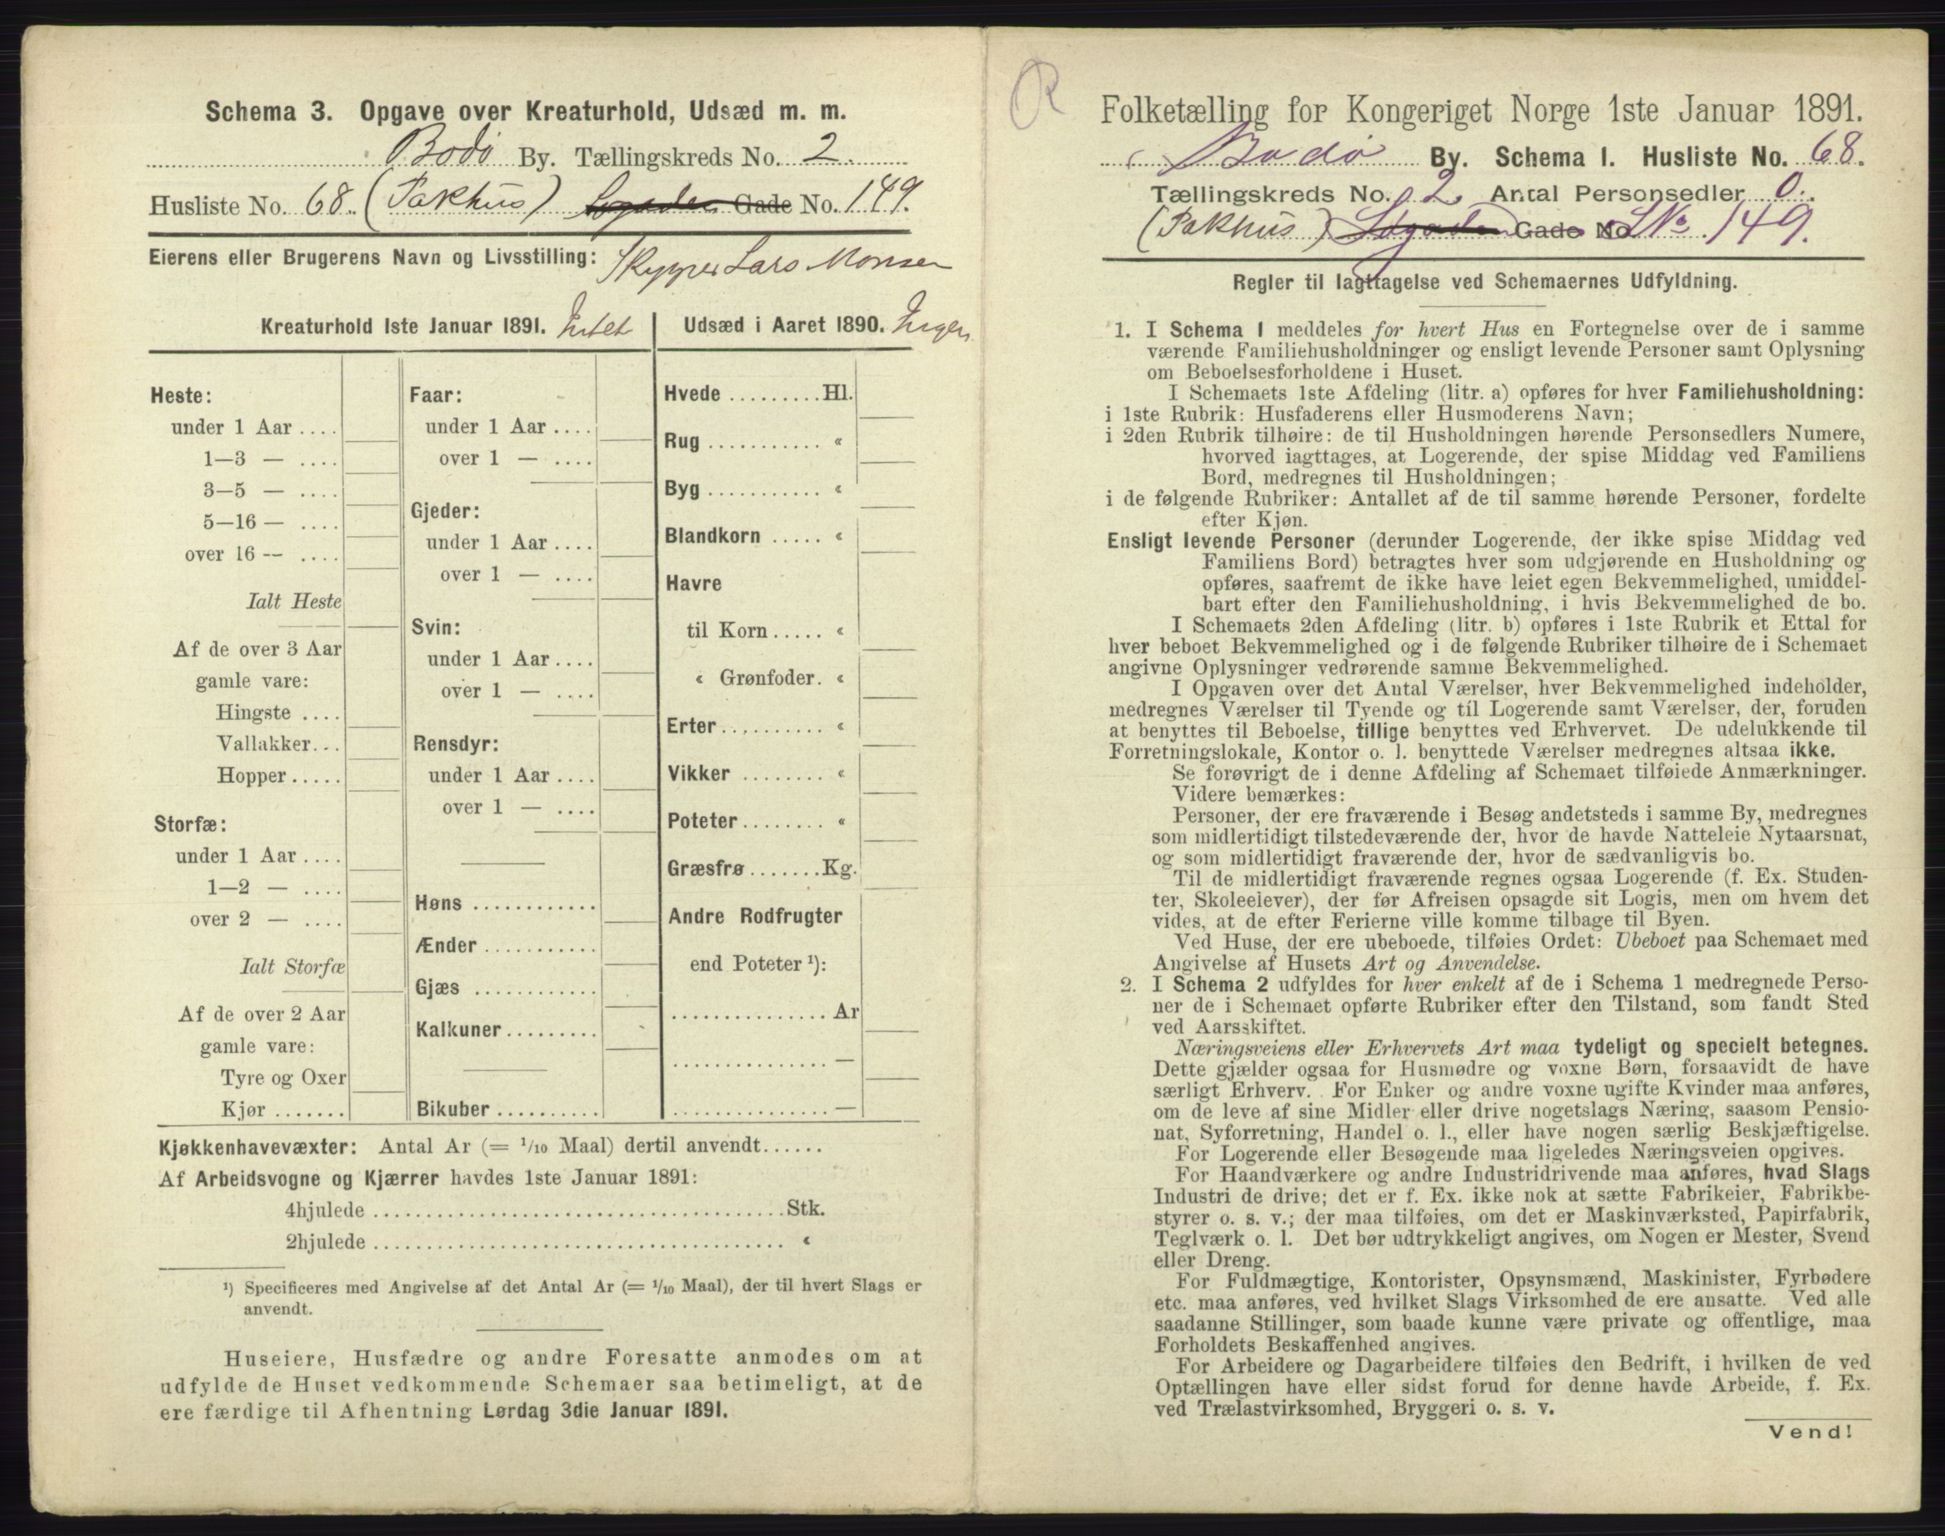 Schema 3. Opgave over Kreaturhold, Udsæd m. m.
Bodö By. Tællingskreds No. 2.
Husliste No. 68. (Pakhus) Søgaden Gade No. 149.
Eierens eller Brugerens Navn og Livsstilling: Skipper Lars Monsen
Kreaturhold 1ste Januar 1891. Intet
Udsæd i Aaret 1890. Ingen
Heste:
under 1 Aar ....
1—3 — ....
3—5 — ....
5—16 — ....
over 16 -- ....
Ialt Heste
Af de over 3 Aar
gamle vare:
Hingste ....
Vallakker...
Hopper .....
Storfæ:
under 1 Aar ....
1—2 — ....
over 2 — ....
Ialt Storfæ
Af de over 2 Aar
gamle vare:
Tyre og Oxer
Kjør .......
Faar:
under 1 Aar ....
over 1 — ....
Gjeder:
under 1 Aar ....
over 1 — ....
Svin:
under 1 Aar ....
over 1 — ....
Rensdyr:
under 1 Aar ....
over 1 — ....
Høns ............
Ænder ...........
Gjæs ............
Kalkuner .........
Bikuber ..........
Hvede .........Hl.
Rug ........... «
Byg ........... «
Blandkorn ..... «
Havre
til Korn ..... «
« Grønfoder. «
Erter .......... «
Vikker ......... «
Poteter ........ «
Græsfrø .......Kg.
Andre Rodfrugter
end Poteter ¹):
............... Ar
............... —
............... —
Kjøkkenhavevæxter: Antal Ar (= 1/10 Maal) dertil anvendt......
Af Arbeidsvogne og Kjærrer havdes 1ste Januar 1891:
4hjulede ........................................Stk.
2hjulede ........................................ «
¹) Specificeres med Angivelse af det Antal Ar (= 1/10 Maal), der til hvert Slags er
anvendt.
Huseiere, Husfædre og andre Foresatte anmodes om at
udfylde de Huset vedkommende Schemaer saa betimeligt, at de
ere færdige til Afhentning Lørdag 3die Januar 1891.
R
Folketælling for Kongeriget Norge 1ste Januar 1891.
Bodö By. Schema I. Husliste No. 68.
Tællingskreds No. 2 Antal Personsedler 0.
(Pakhus) Søgaden Gade No. LNo. 149.
Regler til Iagttagelse ved Schemaernes Udfyldning.
1. I Schema 1 meddeles for hvert Hus en Fortegnelse over de i samme
værende Familiehusholdninger og ensligt levende Personer samt Oplysning
om Beboelsesforholdene i Huset.
I Schemaets 1ste Afdeling (litr. a) opføres for hver Familiehusholdning:
i 1ste Rubrik: Husfaderens eller Husmoderens Navn;
i 2den Rubrik tilhøire: de til Husholdningen hørende Personsedlers Numere,
hvorved iagttages, at Logerende, der spise Middag ved Familiens
Bord, medregnes til Husholdningen;
i de følgende Rubriker: Antallet af de til samme hørende Personer, fordelte
efter Kjøn.
Ensligt levende Personer (derunder Logerende, der ikke spise Middag ved
Familiens Bord) betragtes hver som udgjørende en Husholdning og
opføres, saafremt de ikke have leiet egen Bekvemmelighed, umiddel-
bart efter den Familiehusholdning, i hvis Bekvemmelighed de bo.
I Schemaets 2den Afdeling (litr. b) opføres i 1ste Rubrik et Ettal for
hver beboet Bekvemmelighed og i de følgende Rubriker tilhøire de i Schemaet
angivne Oplysninger vedrørende samme Bekvemmelighed.
I Opgaven over det Antal Værelser, hver Bekvemmelighed indeholder,
medregnes Værelser til Tyende og til Logerende samt Værelser, der, foruden
at benyttes til Beboelse, tillige benyttes ved Erhvervet. De udelukkende til
Forretningslokale, Kontor o. l. benyttede Værelser medregnes altsaa ikke.
Se forøvrigt de i denne Afdeling af Schemaet tilføiede Anmærkninger.
Videre bemærkes:
Personer, der ere fraværende i Besøg andetsteds i samme By, medregnes
som midlertidigt tilstedeværende der, hvor de havde Natteleie Nytaarsnat,
og som midlertidigt fraværende der, hvor de sædvanligvis bo.
Til de midlertidigt fraværende regnes ogsaa Logerende (f. Ex. Studen-
ter, Skoleelever), der før Afreisen opsagde sit Logis, men om hvem det
vides, at de efter Ferierne ville komme tilbage til Byen.
Ved Huse, der ere ubeboede, tilføies Ordet: Ubeboet paa Schemaet med
Angivelse af Husets Art og Anvendelse.
2. I Schema 2 udfyldes for hver enkelt af de i Schema 1 medregnede Perso-
ner de i Schemaet opførte Rubriker efter den Tilstand, som fandt Sted
ved Aarsskiftet.
Næringsveiens eller Erhvervets Art maa tydeligt og specielt betegnes.
Dette gjælder ogsaa for Husmødre og voxne Børn, forsaavidt de have
særligt Erhverv. For Enker og andre voxne ugifte Kvinder maa anføres,
om de leve af sine Midler eller drive nogetslags Næring, saasom Pensio-
nat, Syforretning, Handel o. l., eller have nogen særlig Beskjæftigelse.
For Logerende eller Besøgende maa ligeledes Næringsveien opgives.
For Haandværkere og andre Industridrivende maa anføres, hvad Slags
Industri de drive; det er f. Ex. ikke nok at sætte Fabrikeier, Fabrikbe-
styrer o. s. v.; der maa tilføies, om det er Maskinværksted, Papirfabrik,
Teglværk o. l. Det bør udtrykkeligt angives, om Nogen er Mester, Svend
eller Dreng.
For Fuldmægtige, Kontorister, Opsynsmænd, Maskinister, Fyrbødere
etc. maa anføres, ved hvilket Slags Virksomhed de ere ansatte. Ved alle
saadanne Stillinger, som baade kunne være private og offentlige, maa
Forholdets Beskaffenhed angives.
For Arbeidere og Dagarbeidere tilføies den Bedrift, i hvilken de ved
Optællingen have eller sidst forud for denne havde Arbeide, f. Ex.
ved Trælastvirksomhed, Bryggeri o. s. v.
Vend!